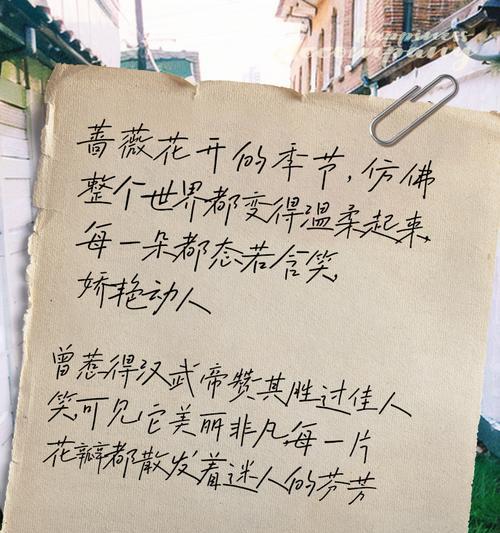 Happiness
accompany
蔷薇花开的季节,仿佛
整个世界都变得温柔起来,
每一朵都态若含笑,
娇艳动人
曾惹得汉武帝赞其胜过佳人
笑可见它美丽非凡,每一片
花瓣都散发着迷人的芬芳